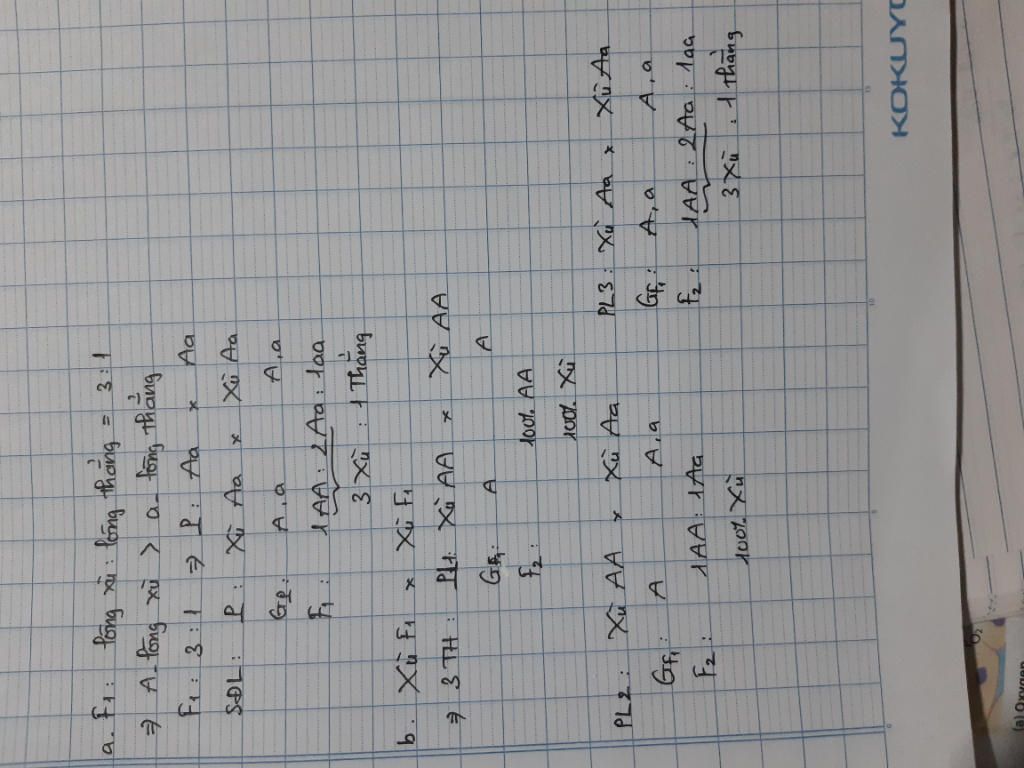 a. F1: lông xù : lông thẳng = 3 : 1
⇒ A-lông xù > a-lông thẳng
F1 : 3 : 1 ⇒ P : Aa × Aa
SĐL : P : Xù Aa × Xù Aa
GP : A, a A, a
F1 : 1AA : 2Aa : 1aa
3 Xù : 1 Thẳng
b. Xù F1 × Xù F1
⇒ 3 TH : PL1: Xù AA × Xù AA
GF1: A A
F2 : 100% AA
100% Xù
PL2 : Xù AA × Xù Aa
GF1 : A A, a
F2 : 1AA : 1Aa
100% Xù
PL3 : Xù Aa × Xù Aa
GF1 : A, a A, a
F2 : 1AA : 2Aa : 1aa
3 Xù : 1 thẳng
KOKUYO
0
5
10
15
(a) Oxygen